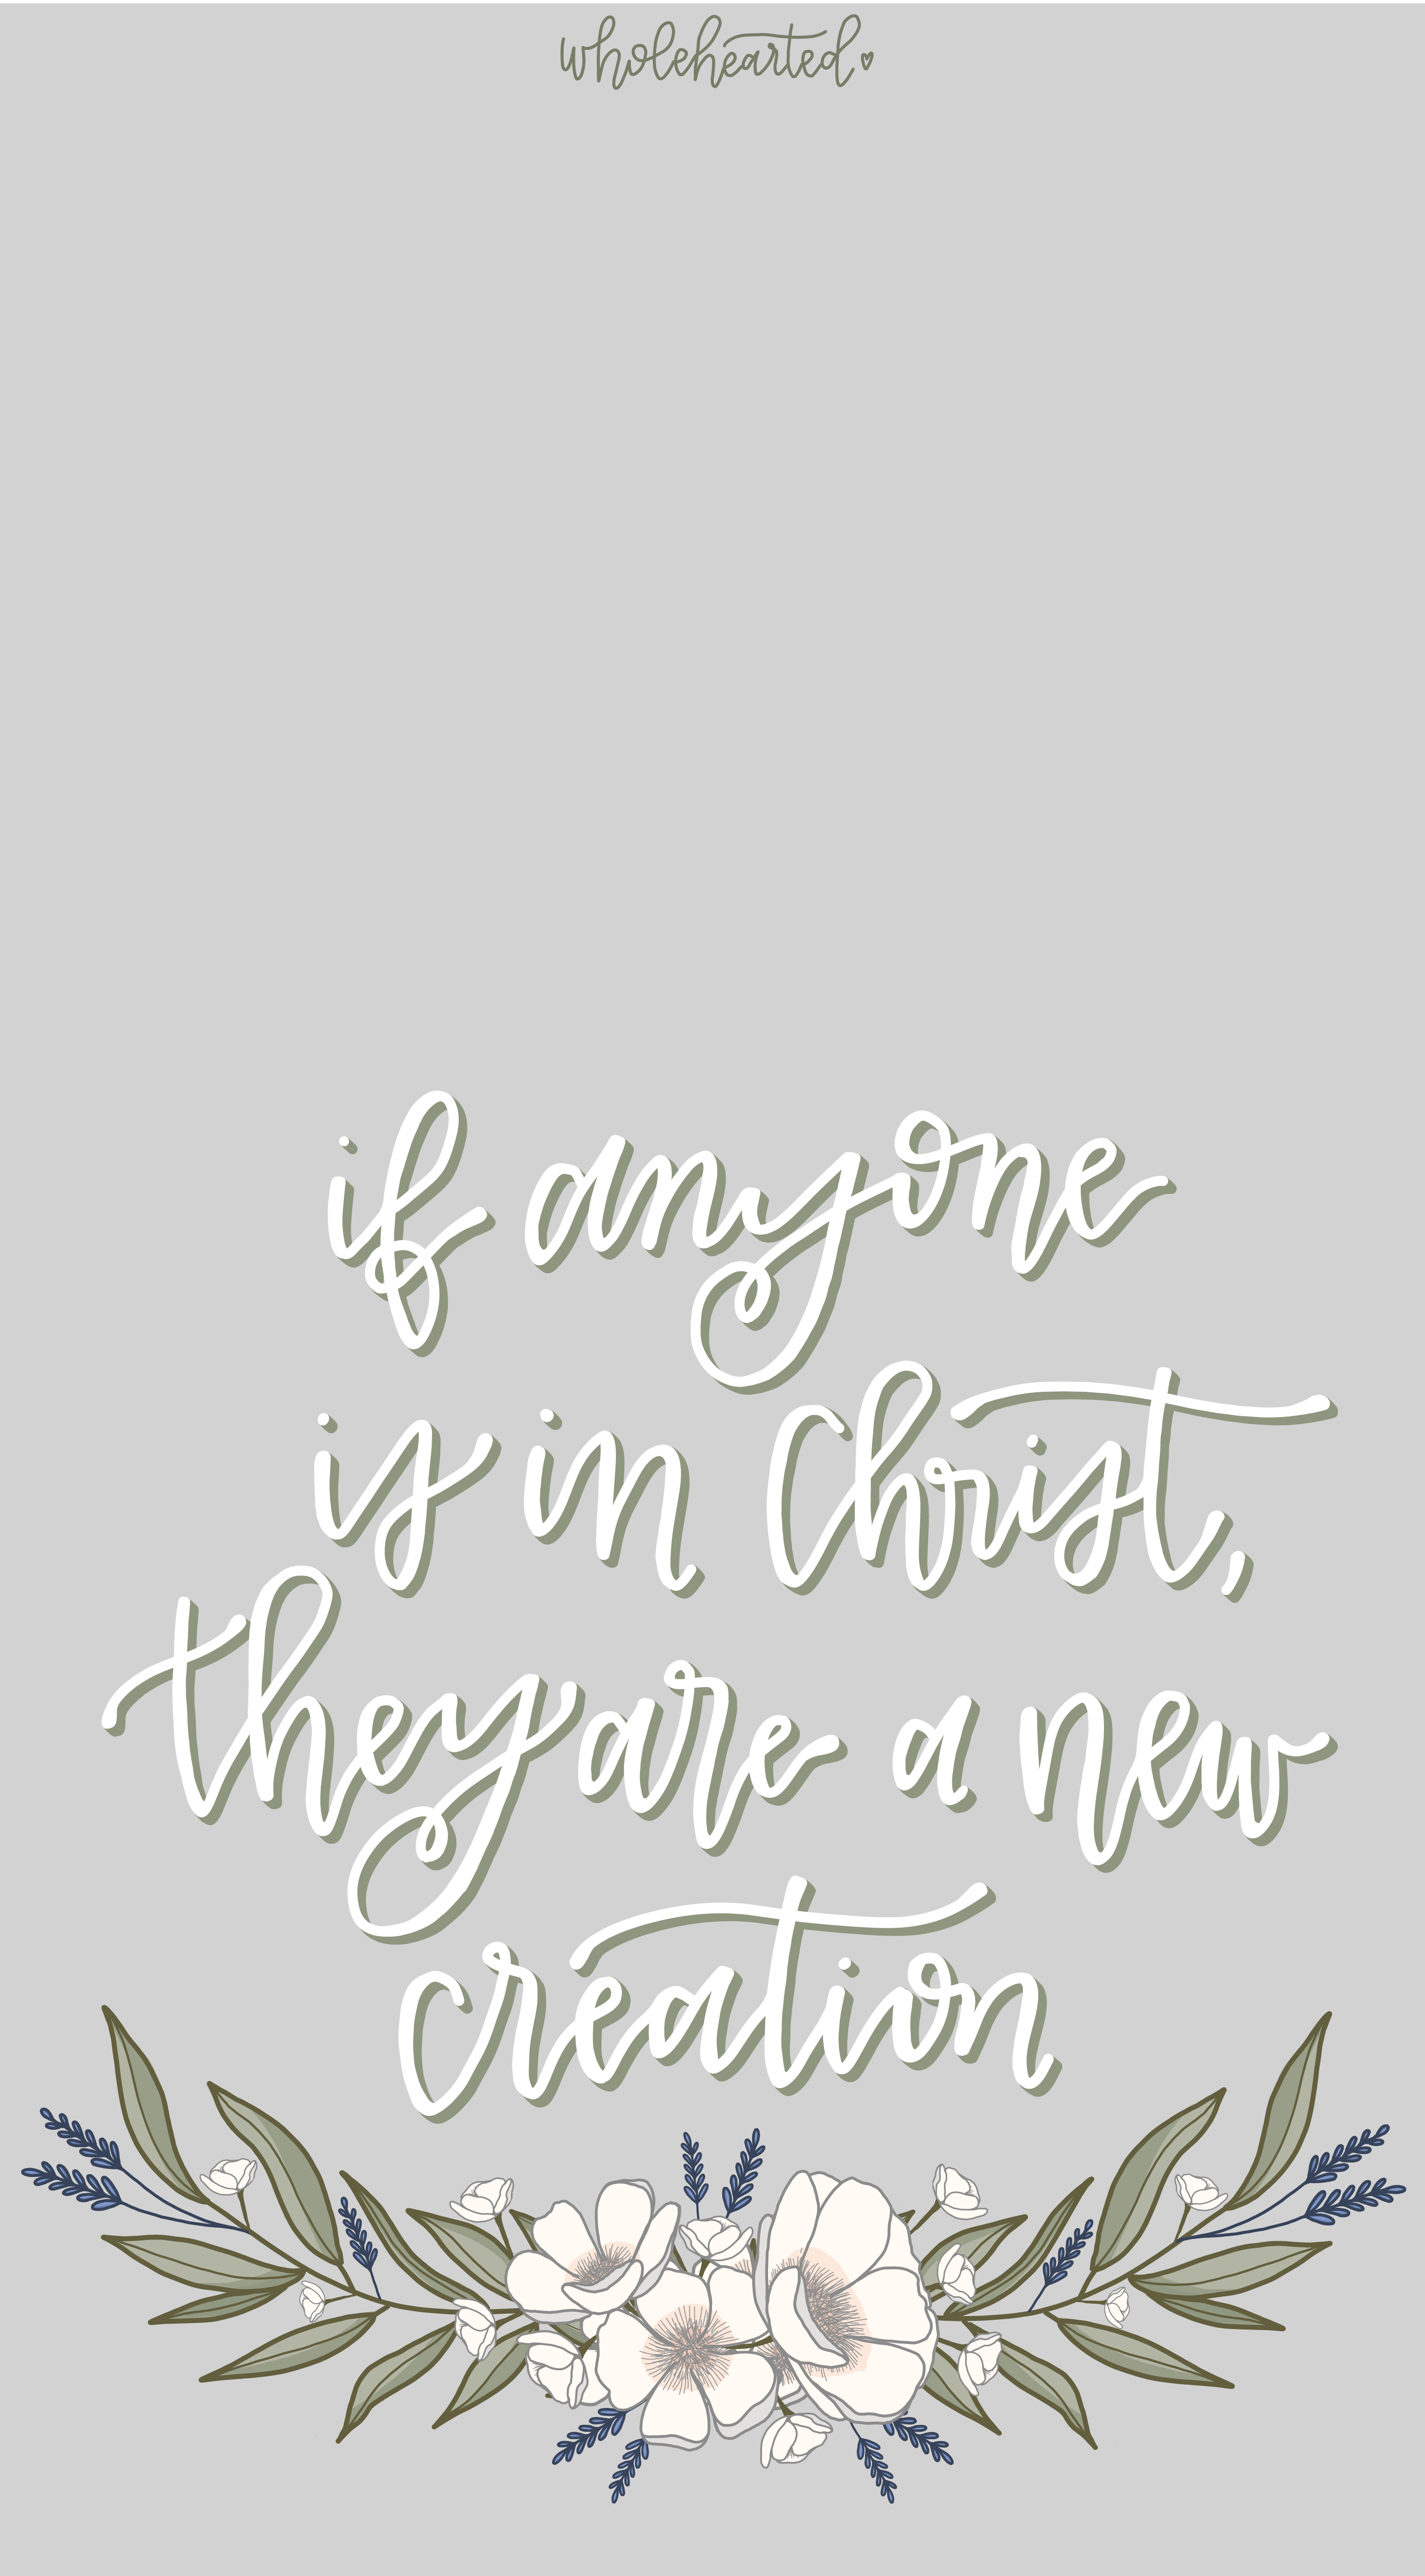 wholehearted
if anyone
is in Christ,
they are a new
creation